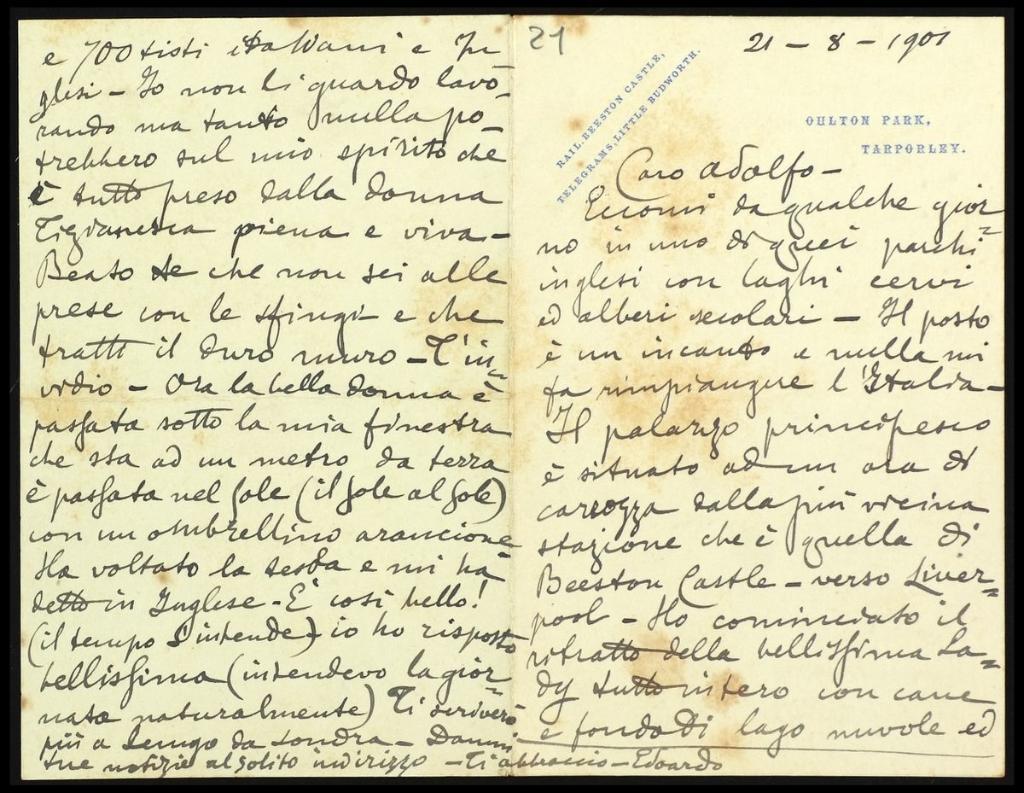 21
21 – 8 – 1901
RAIL. BEESTON CASTLE,
TELEGRAMS, LITTLE BUDWORTH.
OULTON PARK,
TARPORLEY.
Caro Adolfo –
Eccomi da qualche gior=
no in uno di quei parchi
inglesi con laghi cervi
ed alberi secolari – Il posto
è un incanto e nulla mi
fa rimpiangere l'Italia –
Il palazzo principesco
è situato ad un ora di
carrozza dalla più vicina
stazione che è quella di
Beeston Castle – verso Liver=
pool – Ho cominciato il
ritratto della bellissima La=
dy tutto intero con cane
e fondo di lago nuvole ed
e 700tisti italiani e In
glesi – Io non li guardo lavo–
rando ma tanto nulla po–
trebbero sul mio spirito che
è tutto preso dalla donna
Tizianesca piena e viva –
Beato te che non sei alle
prese con le sfingi – e che
tratti il duro muro – T'in=
vidio – Ora la bella donna è
passata sotto la mia finestra
che sta ad un metro da terra
è passata nel sole (il sole al sole)
con un ombrellino arancione
Ha voltato la testa e mi ha
detto in Inglese – È così bello!
(il tempo s'intende) – io ho risposto
bellissima (intendevo la gior=
nata naturalmente) Ti scriverò
più a lungo da Londra – Dammi
tue notizie al solito indirizzo – Ti abbraccio – Edoardo